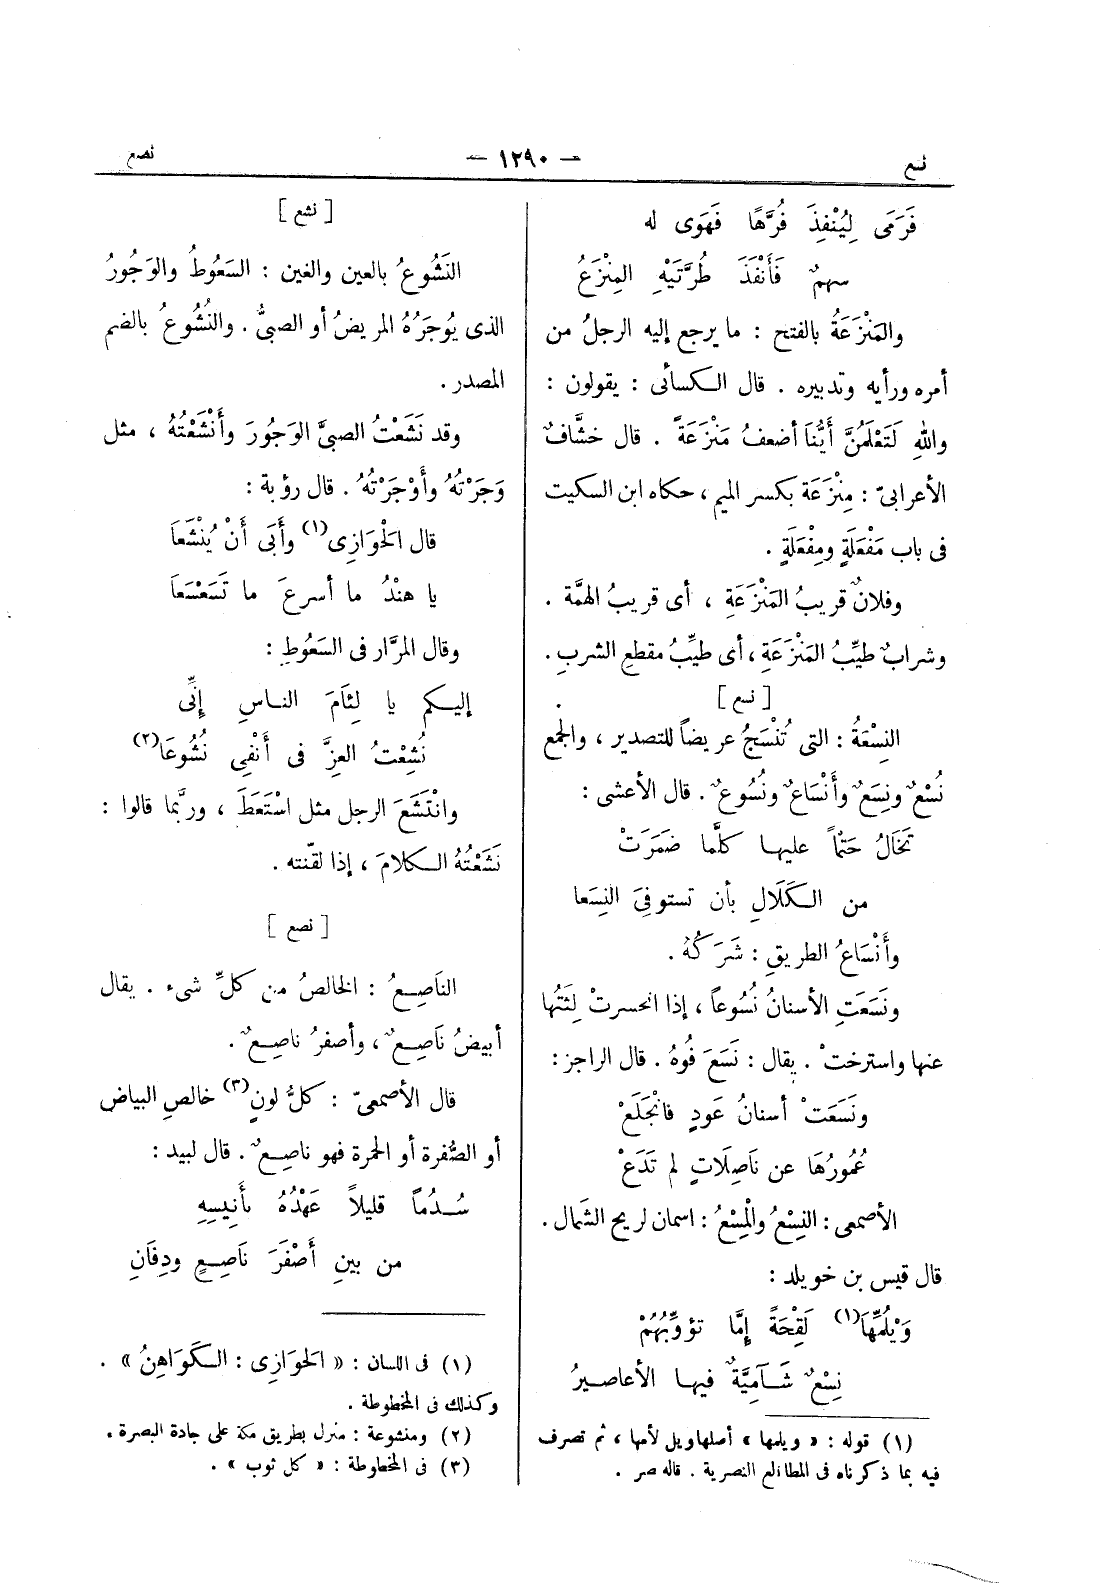 نسع
— ١٢٩٠ —
نصع
فَرَمَى لِيُنْفِذَ فُرَّهًا فَهَوَى له
سهمٌ فَأَنْفَذَ طُرَّتَيْهِ المِنْزَعُ
والمَنْزَعَةُ بالفتح : ما يرجع إليه الرجلُ من
أمره ورأيه وتدبيره . قال الكسائى : يقولون :
واللهِ لَتَعْلَمُنَّ أَيُّنَا أضعفُ مَنْزَعَةً . قال خشَّافٌ
الأعرابىّ : مِنْزَعَة بكسر الميم ، حكاه ابن السكيت
فى باب مَفْعَلَةٍ ومِفْعَلَةٍ .
وفلانٌ قريبُ المَنْزَعَةِ ، أى قريبُ الهمَّة .
وشرابٌ طيِّبُ المَنْزَعَةِ ، أى طيِّبُ مقطعِ الشربِ .
[ نسع ]
النِسْعَةُ : التى تُنْسَجُ عريضاً للتصدير ، والجمع
نُسْعٌ ونِسَعٌ وأَنْسَاعٌ ونُسُوعٌ . قال الأعشى :
تَخَالُ حَتْماً عليها كلَّما ضَمَرَتْ
من الكَلَالِ بأن تستوفِىَ النِسَعا
وأَنْسَاعُ الطريقِ : شَرَكُهُ .
ونَسَعَتِ الأسنانُ نُسُوعاً ، إذا انحسرتْ لِثَتُها
عنها واسترختْ . يقال : نَسَعَ فُوهُ . قال الراجز :
ونَسَعَتْ أسنانُ عَودٍ فانْجَلَعْ
عُمُورُهَا عن نَاصِلَاتٍ لم تَدَعْ
الأصمعى : النِسْعُ والمِسْعُ : اسمان لريح الشَمال .
قال قيس بن خويلد :
وَيْلُمِّهَا(١) لَقْحَةً إمَّا تؤوِّبُهُمْ
نِسْعٌ شَآمِيَّةٌ فيها الأعاصيرُ
(١) قوله : « ويلمها » أصلها ويل لأمها ، ثم تصرف
فيه بما ذكرناه فى المطالع النصرية . قاله صر .
[ نشع ]
النَشُوعُ بالعين والغين : السَعُوطُ والوَجُورُ
الذى يُوجَرُهُ المريضُ أو الصبىُّ . والنُشُوعُ بالضم
المصدر .
وقد نَشَعْتُ الصبىَّ الوَجُورَ وأَنْشَعْتُهُ ، مثل
وَجَرْتُهُ وأَوْجَرْتُهُ . قال رؤبة :
قال الحَوَازِى(١) وأَبَى أَنْ يُنْشَعَا
يا هندُ ما أسرعَ ما تَسَعْسَعَا
وقال المرَّار فى السَعُوطِ :
إليكم يا لِئَامَ الناسِ إنِّى
نُشِعْتُ العِزَّ فى أَنْفِى نُشُوعَا(٢)
وانْتَشَعَ الرجل مثل اسْتَعَطَ ، وربَّما قالوا :
نَشَعْتُهُ الكلامَ ، إذا لقّنته .
[ نصع ]
الناَصِعُ : الخالصُ من كلِّ شىء . يقال
أبيضُ نَاصِعٌ ، وأصفرُ ناصِعٌ .
قال الأصمعىّ : كلُّ لونٍ(٣) خالصِ البياض
أو الصُّفرة أو الحمرة فهو ناصِعٌ . قال لبيد :
سُدُماً قليلاً عَهْدُهُ بأَنِيسِهِ
من بينِ أَصْفَرَ نَاصِعٍ ودِفَانِ
(١) فى اللسان : « الحَوَازِى : الكَوَاهِنُ » .
وكذلك فى المخطوطة .
(٢) ومنشوعة : منزل بطريق مكة على جادة البصرة .
(٣) فى المخطوطة : « كل ثوب » .